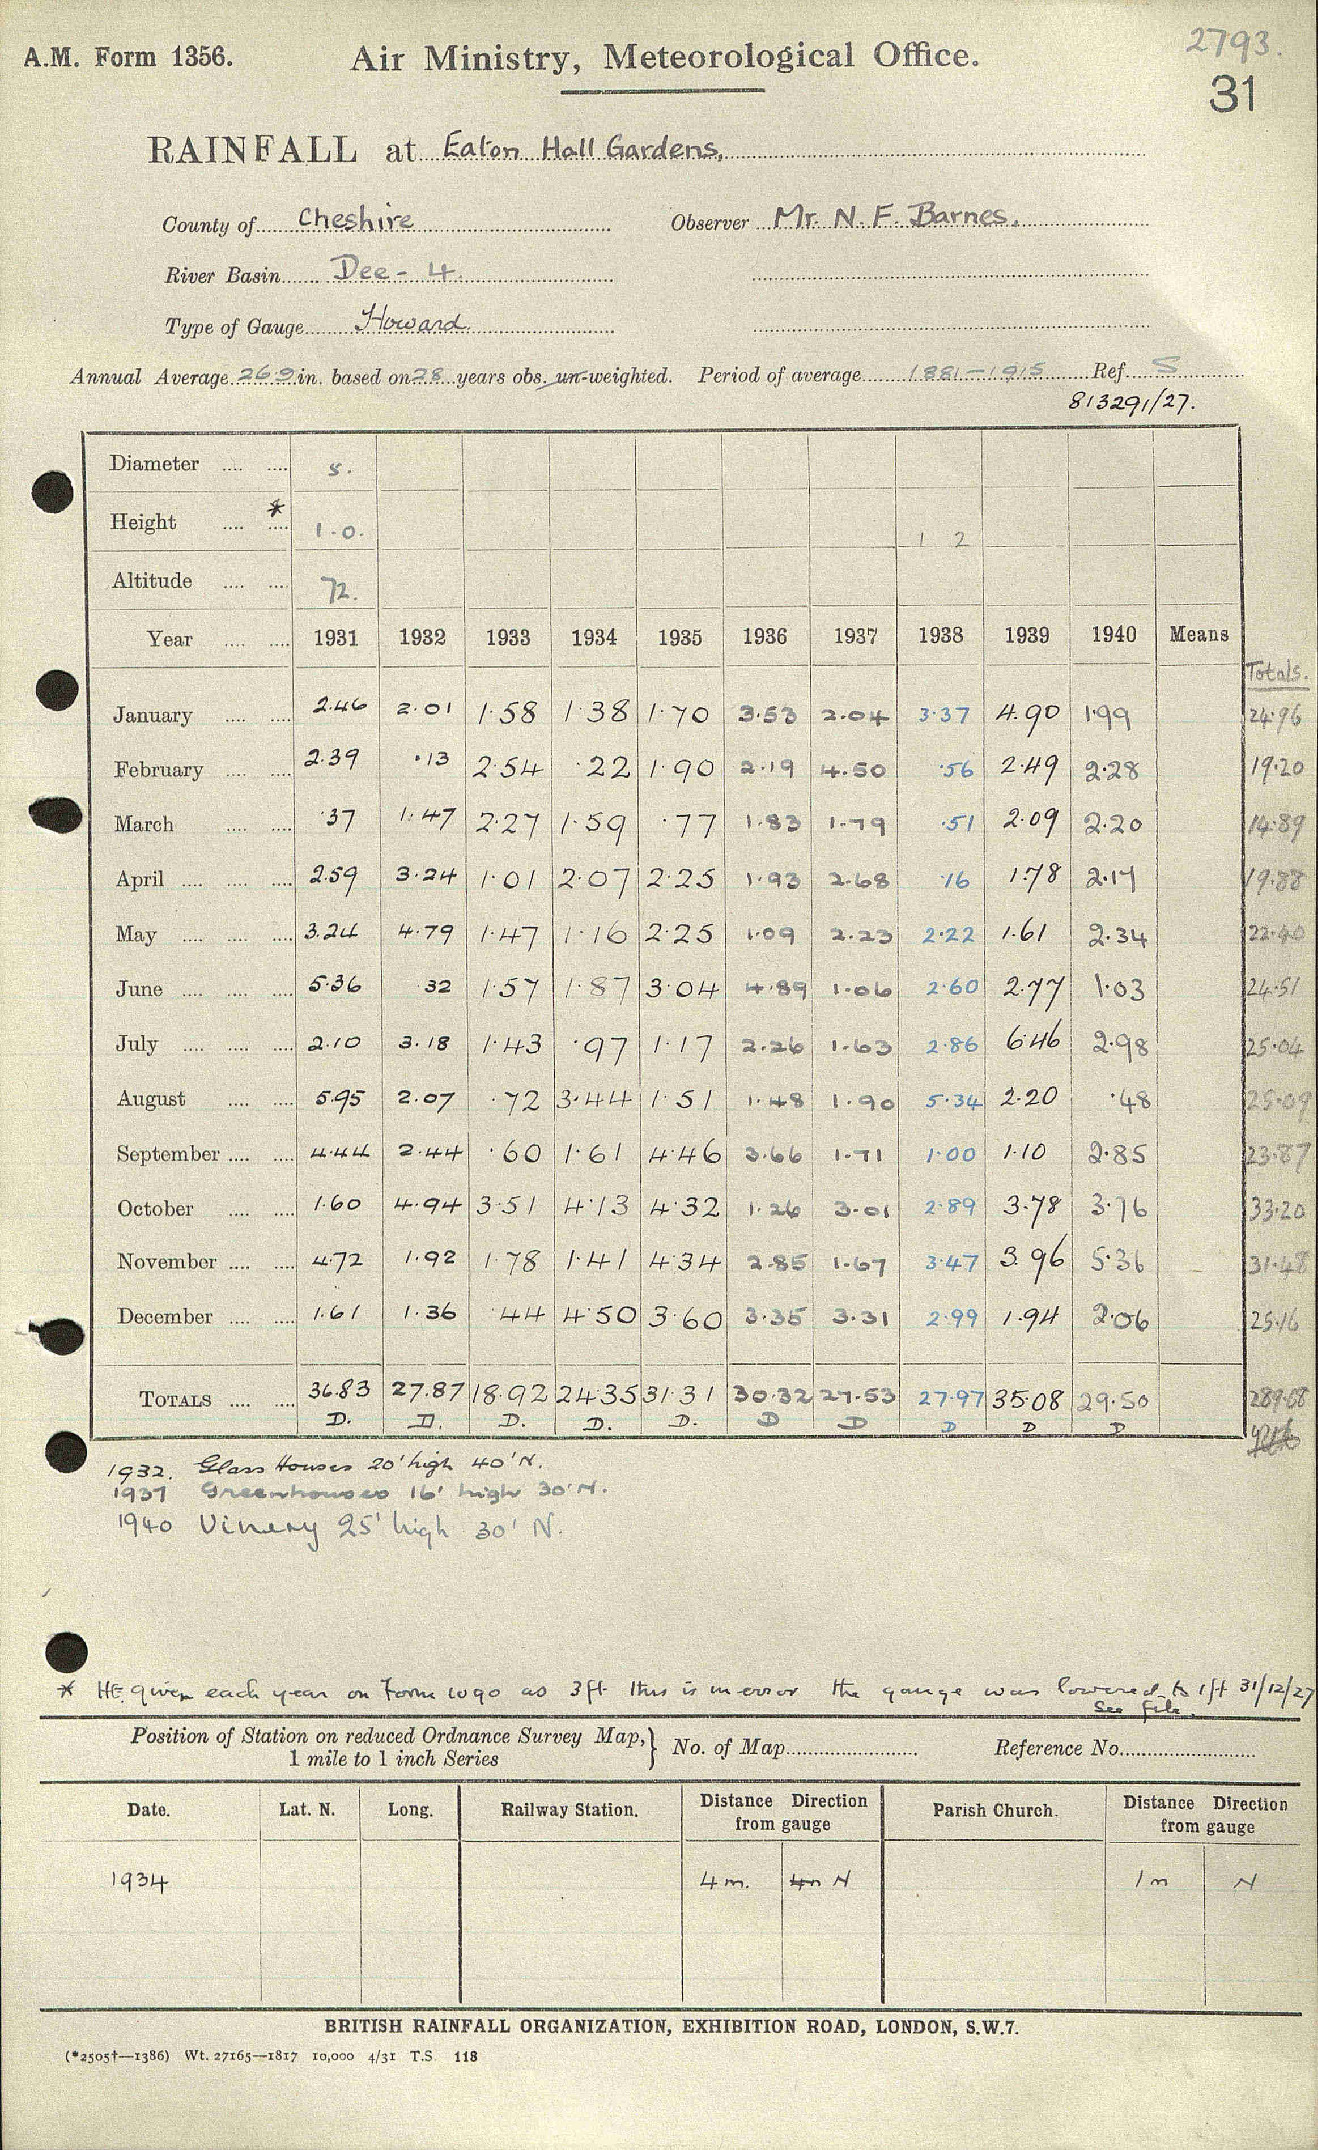 2793.
A.M. Form 1356. Air Ministry, Meteorological Office.
31
RAINFALL at Eaton Hall Gardens,
County of Cheshire Observer Mr. N. F. Barnes.
River Basin Dee - 4.
Type of Gauge Howard
Annual Average 26.9 in. based on 28 years obs. un-weighted. Period of average 1881-1915 Ref. S
813291/27.
Diameter .... .... 5.
Height .... .... * 1.0. 1 2
Altitude .... .... 72.
Year .... .... 1931 1932 1933 1934 1935 1936 1937 1938 1939 1940 Means
Totals.
January .... .... 2.46 2.01 1.58 1.38 1.70 3.53 2.04 3.37 4.90 1.99 24.96
February .... .... 2.39 .13 2.54 .22 1.90 2.19 4.50 .56 2.49 2.28 19.20
March .... .... .37 1.47 2.27 1.59 .77 1.83 1.79 .51 2.09 2.20 14.89
April .... .... .... 2.59 3.24 1.01 2.07 2.25 1.93 2.68 .16 1.78 2.17 19.88
May .... .... .... 3.24 4.79 1.47 1.16 2.25 1.09 2.23 2.22 1.61 2.34 22.40
June .... .... .... 5.36 .32 1.57 1.87 3.04 4.89 1.06 2.60 2.77 1.03 24.51
July .... .... .... 2.10 3.18 1.43 .97 1.17 2.26 1.63 2.86 6.46 2.98 25.04
August .... .... 5.95 2.07 .72 3.44 1.51 1.48 1.90 5.34 2.20 .48 25.09
September .... .... 4.44 2.44 .60 1.61 4.46 3.66 1.71 1.00 1.10 2.85 23.87
October .... .... 1.60 4.94 3.51 4.13 4.32 1.26 3.01 2.89 3.78 3.76 33.20
November .... .... 4.72 1.92 1.78 1.41 4.34 2.85 1.67 3.47 3.96 5.36 31.48
December .... .... 1.61 1.36 .44 4.50 3.60 3.35 3.31 2.99 1.94 2.06 25.16
TOTALS .... .... 36.83 27.87 18.92 24.35 31.31 30.32 27.53 27.97 35.08 29.50 289.68
D. D. D. D. D. D D D D D
1932. Glass Houses 20' high 40' N.
1937 Greenhouses 16' high 30' N.
1940 Vinery 25' high 30' N.
* Ht. given each year on Form 1090 as 3ft this is in error the gauge was lowered to 1ft 31/12/27
See file.
Position of Station on reduced Ordnance Survey Map, } No. of Map Reference No.
1 mile to 1 inch Series
Date. Lat. N. Long. Railway Station. Distance from gauge Direction Parish Church. Distance from gauge Direction
1934 4 m. 4m N 1 m N
BRITISH RAINFALL ORGANIZATION, EXHIBITION ROAD, LONDON, S.W.7.
(*2505†—1386) Wt. 27165—1817 10,000 4/31 T.S. 118